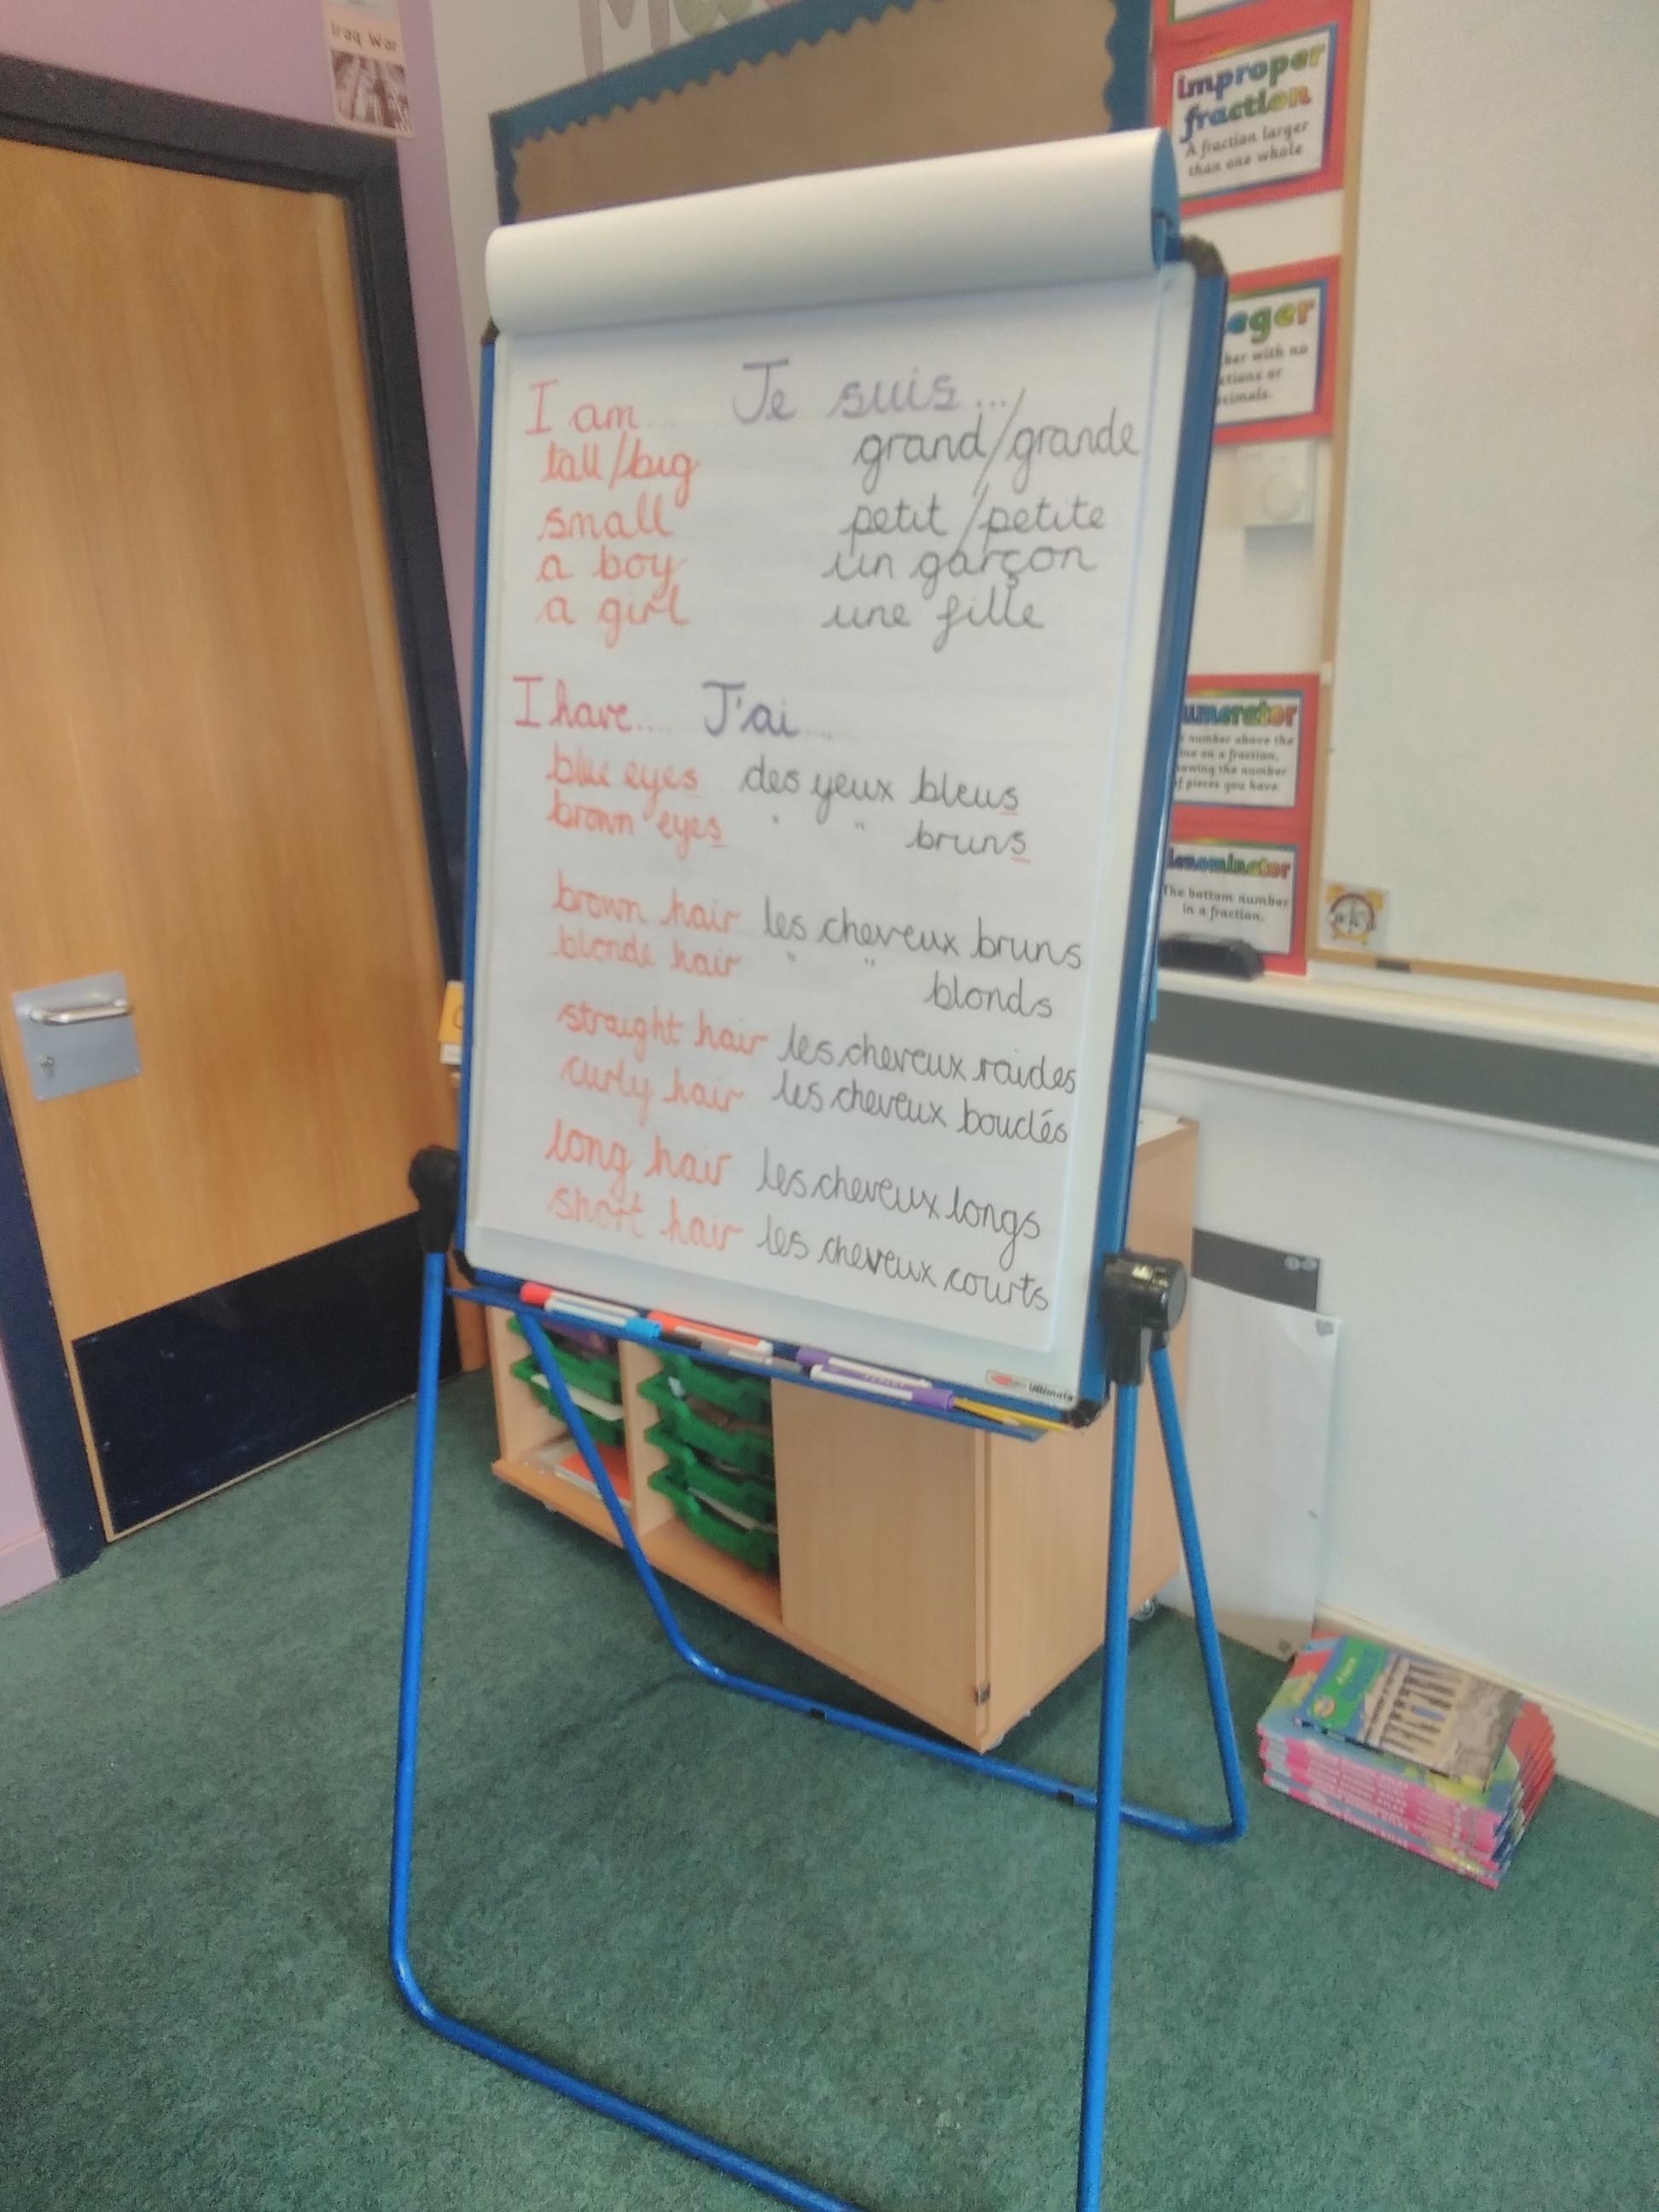 Iraq War
improper
fraction
A fraction larger
than one whole
eger
ber with no
ctions or
cimals.
I am... Je suis...
tall/big grand/grande
small petit/petite
a boy un garçon
a girl une fille
I have.... J'ai....
blue eyes des yeux bleus
brown eyes " " bruns
brown hair les cheveux bruns
blonde hair " " blonds
straight hair les cheveux raides
curly hair les cheveux bouclés
long hair les cheveux longs
short hair les cheveux courts
umerator
number above the
ine on a fraction,
owing the number
f pieces you have.
denominator
The bottom number
in a fraction.
Ultimate